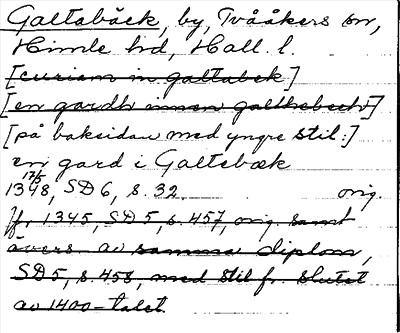 Galtabäck, by, Tvååkers sn,
Himle hd, Hall. l.
[curiam in galtabek]
[en gardh innan galthebech]
[på baksidan med yngre stil:]
en gard i Galtebæk
17/5
1348, SD 6, s. 32. orig.
Jfr 1345, SD 5, s. 457, orig. samt
övers. av samma diplom,
SD 5, s. 458, med stil fr. slutet
av 1400-talet.